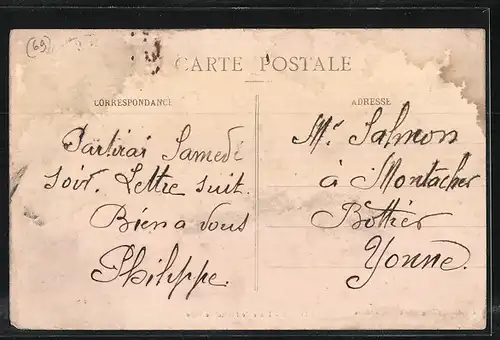 (69)
CARTE POSTALE
CORRESPONDANCE
Partirai Samedi
soir. Lettre suit.
Bien a vous
Philippe.
ADRESSE
Mr Salmon
à Montacher
Bottier
Yonne.